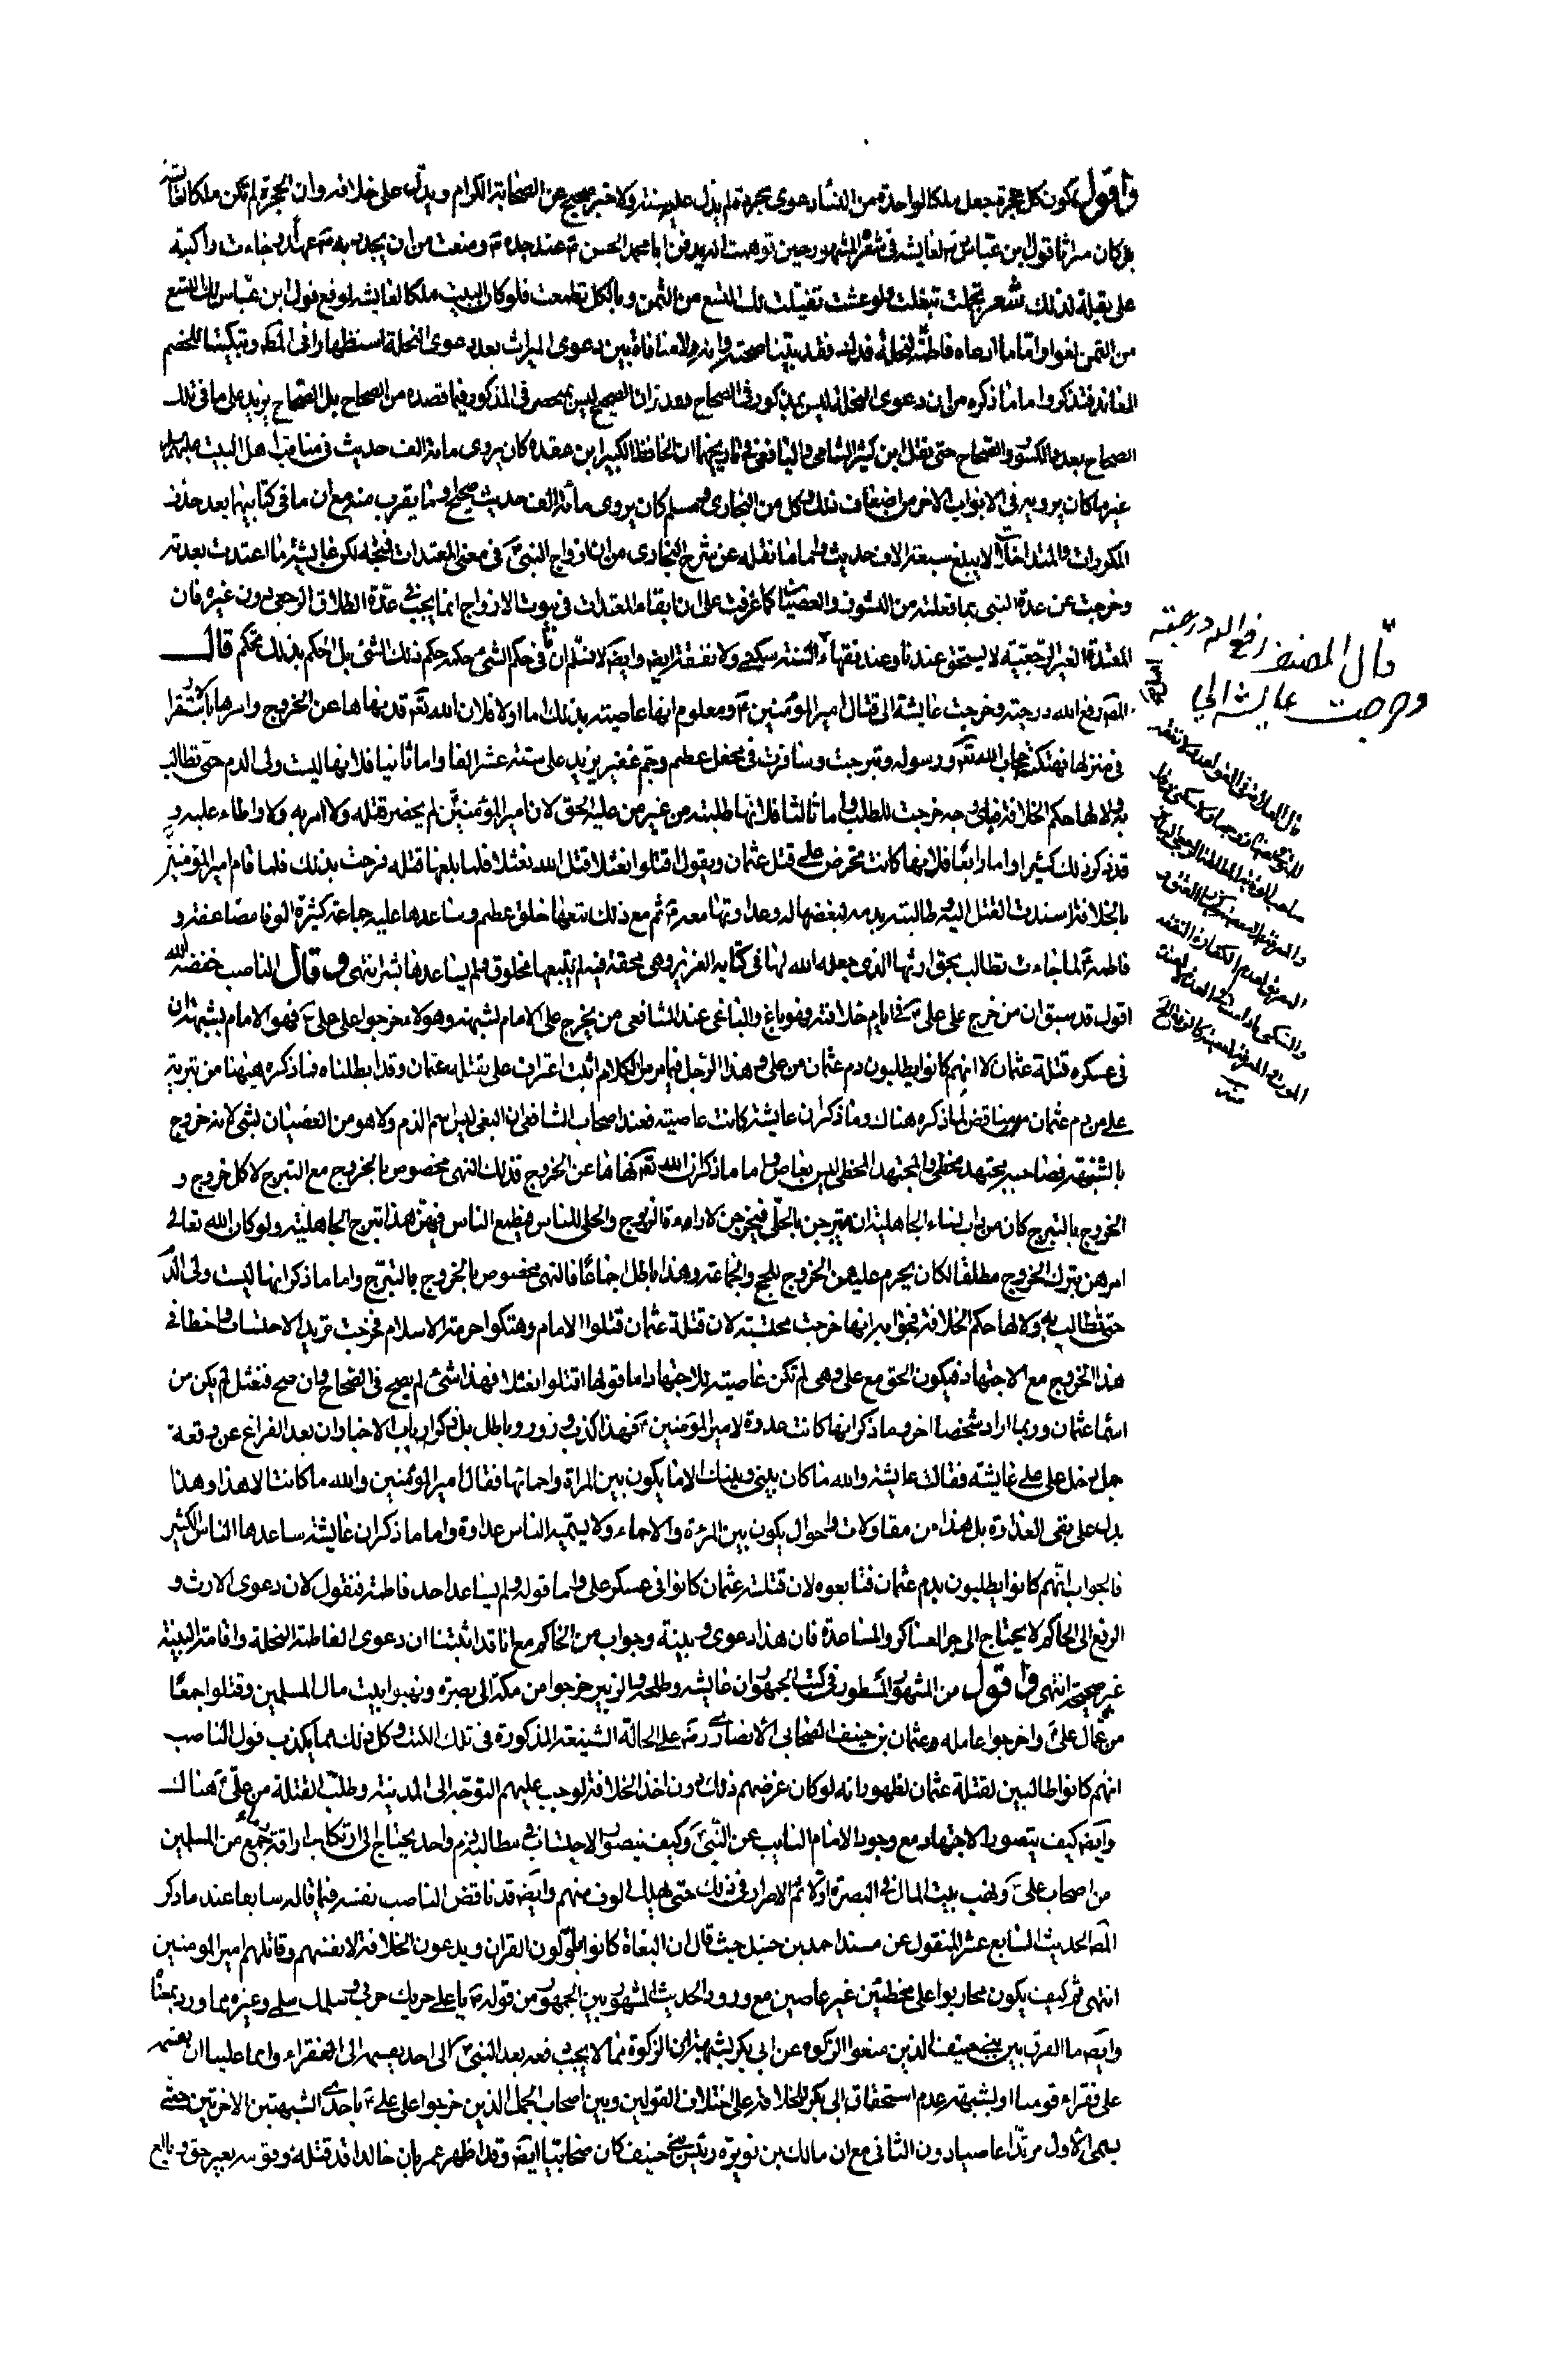 واقول كون كل حجرة جعل ملكا لواحدة من النساء دعوى مجردة لم يدل عليه سنة ولا خبر صحيح عن الصحابة الكرام ويدل على خلافه وان الحجرة لم تكن ملكا لعايشة
بل كان ميراثا قول ابن عباس لعايشة في شعر المشهور حين توهمت انه يدفن ابا محمد الحسن عند جده ومنعت من ان يجدد به عهدا وجاءت راكبة
على بغلة لذلك شعر تجملت تبغلت ولو عشت تفيلت لك التسع من الثمن وبالكل تطمعت فلو كان البيت ملكا لعايشة لوقع قول ابن عباس لك التسع
من الثمن لغوا واما ما ادعاه فاطمة نحلة فدك فقد بينا صحته وانه لا منافاة بين دعوى الميراث بعد دعوى النحلة استظهارا في المط وتبكيتا للخصم
المعاند فتذكر واما ما ذكره من ان دعوى النحلة ليس بمذكور في الصحاح فمعد ان الصحيح ليس بمنحصر في المذكور فيما قصده من الصحاح بل الصحاح يزيد على ما في تلك
الصحاح بعد حتى نقل ابن كثير الشامي واليافعي في تاريخهما ان الحافظ الكبير ابن عقده كان يروى مائة الف حديث في مناقب اهل البيت عليهم السلم
غير ما كان يرويه في الابواب الاخر من اضعاف ذلك وكل من البخاري ومسلم كان يروى مائة الف حديث صحيح او ما يقرب منه مع ان ما في كتابيهما بعد حذف
المكررات والمتداخلات لا يبلغ سبعة الاف حديث واما ما نقله عن شرح البخاري من ان ازواج النبي في معنى المعتدات فيتجه لكن عايشة ما اعتدت بعدته
وخرجت عن عدة النبي بما فعلته من النشوز والعصيان كما عرفت على ان ابقاء المعتدات في بيوت الازواج انما يجب في عدة الطلاق الرجعي دون غيره فان
المعتدة الغير الرجعية لا يستحق عندنا وعند فقهاء السنة سكنى ولا نفقة ايض وايض لا نسلم ان ما في حكم الشئ حكمه حكم ذلك الشئ بل الحكم بذلك تحكم قال
المص رفع الله درجته وخرجت عايشة الى قتال امير المؤمنين ومعلوم انها عاصية بذلك اما اولا فلان الله تعم قد نهاها عن الخروج وامرها بالاستقرار
في منزلها فهتكت حجاب الله تعم ورسوله وتبرجت وسافرت في محفل عظيم وجم غفير يزيد على ستة عشر الفا واما ثانيا فلانها ليست ولى الدم حتى تطالب
به ولا لها حكم الخلافة فباى وجه خرجت للطلب واما ثالثا فلانها طلبته من غير من عليه الحق لان امير المؤمنين لم يحضر قتله ولا امر به ولا واطاء عليه و
قد ذكر ذلك كثيرا واما رابعا فلانها كانت تحرض على قتل عثمان ويقول اقتلوا نعثلا قتل الله نعثلا فلما بلغها قتله فرحت بذلك فلما قام امير المؤمنين
بالخلافة اسندت القتل اليه وطالبته بدمه لبغضها له وعداوتها معه ثم مع ذلك تبعها خلق عظيم وساعدها عليه جماعة كثيرة الوفا مضاعفة و
فاطمة لما جاءت تطالب بحق ارثها الذي جعله الله لها في كتابه العزيز وهي محقة فيه لم يتبعها مخلوق ولم يساعدها بشر انتهى وقال الناصب خفضه الله
اقول قد سبق ان من خرج على على في ايام خلافته فهو باغ والباغى عند الشافعى من يخرج على الامام لشبهة وهولاء خرجوا على على فهو الامام لشبهة ان
في عسكره قتلة عثمان لا انهم كانوا يطلبون دم عثمان من على وهذا الرجل فيما مر من الكلام اثبت اعتراف على بقتله عثمان وقد ابطلناه فما ذكره هيهنا من تبرية
على من دم عثمان مناقض لما ذكره هناك وما ذكر ان عايشة كانت عاصية فعند اصحاب الشافعى ان البغى ليس اسم الذم ولا هو من العصيان لشئ لانه خروج
بالشبهة فصاحبه مجتهد مخطئ والمجتهد المخطى ليس بعاص واما ما ذكر ان الله تعم نهاها عن الخروج فذلك النهى مخصوص بالخروج مع التبرج لا كل خروج و
الخروج بالتبرج كان من داب نساء الجاهلية ان يتبرجن بالحلى فيخرجن لاراءة الزوج والحلى للناس فيطمع الناس فيهن هذا تبرج الجاهلية ولو كان الله تعالى
امرهن بترك الخروج مطلقا لكان يحرم عليهن الخروج للحج والجماعة وهذا باطل اجماعا فالنهى مخصوص بالخروج بالتبرج واما ما ذكر انها ليست ولى الدم
حتى تطالب به ولا لها حكم الخلافة فجوابه انها خرجت محتسبة لان قتلة عثمان قتلوا الامام وهتكوا حرمة الاسلام فخرجت تريد الاحتساب واخطا في
هذا الخروج مع الاجتهاد فيكون الحق مع على وهى لم تكن عاصية للاجتهاد اما قولها اقتلوا نعثلا فهذا شئ لم يصح في الصحاح وان صح فنعثل لم يكن من
اسما عثمان وربما اراد شخصا اخر وما ذكر انها كانت عدوة لامير المؤمنين فهذا كذب وزور وباطل بل ذكر ارباب الاخبار ان بعد الفراغ عن وقعة
جمل دخل على على عايشة فقالت عايشة والله ما كان بينى وبينك الا ما يكون بين المراة واحمائها فقال امير المؤمنين والله ما كانت الا هذا وهذا
يدل على نفى العداوة بل هذا من مقاولات واحوال يكون بين المرءة والاحماء ولا يسميه الناس عداوة واما ما ذكر ان عايشة ساعدها الناس الكثير
فالجواب انهم كانوا يطلبون بدم عثمان فتابعوه لان قتلة عثمان كانوا في عسكر على واما قوله ولم يساعد احد فاطمة فنقول لان دعوى الارث و
الرفع الى الحاكم لا يحتاج الى جر العساكر والمساعدة فان هذا دعوى وبينة وجواب من الحاكم مع انا قد اثبتنا ان دعوى الفاطمة النحلة واقامة البينة
غير صحيحة انتهى واقول من المشهور المسطور في كتب الجمهور ان عايشة وطلحة والزبير خرجوا من مكة الى بصرة ونهبوا بيت مال المسلمين وقتلوا جمعا
من عمال على واخرجوا عامله وعثمان بن حنيف الصحابى الانصارى رض على الحالة الشنيعة المذكورة في تلك الكتب وكل ذلك مما يكذب قول الناصب
انهم كانوا طالبين لقتلة عثمان لظهور انه لو كان غرضهم ذلك دون اخذ الخلافة لوجب عليهم التوجه الى المدينة وطلب القتلة من على هناك
وايض كيف يتصور الاجتهاد مع وجود الامام النايب عن النبي وكيف يتصور الاحتساب في مطالبة دم واحد يحتاج الى ارتكاب اراقة دماء جمع من المسلمين
من اصحاب على ونهب بيت المال في البصرة اولا ثم الاصرار في ذلك حتى يهلك الوف منهم وايض قد ناقض الناصب نفسه فيما قاله سابعا عند ما ذكر
المص الحديث السابع عشر المنقول عن مسند احمد بن حنبل حيث قال ان البغاة كانوا يأولون القران ويدعون الخلافة لانفسهم وقاتلهم امير المومنين
انتهى ثم كيف يكون محاربوا على مخطئين غير عاصين مع ورود الحديث المشهور بين الجمهور من قوله يا على حربك حربى وسلمك سلمى وغيره مما ورد بمعناه
وايض ما الفرق بين بنى حنيفة الذين منعوا الزكوة عن ابى بكر بشبهة ان الزكوة مما لا يجب دفعه بعد النبي الى احد يقسمه الى الفقراء وانما علينا ان نقسمه
على فقراء قومنا او لشبهة عدم استحقاق ابى بكر للخلافة على اختلاف القولين وبين اصحاب الجمل الذين خرجوا على على باحدى الشبهتين الاخرتين حتى
يسمى الاول مرتدا عاصيا دون الثانى مع ان مالك بن نويرة رئيس بنى حنيف كان صحابيا ايض وقد اظهر عمر بان خالدا قد قتله بغير حق
قال المصنف رفع الله درجته
وخرجت عايشة الى